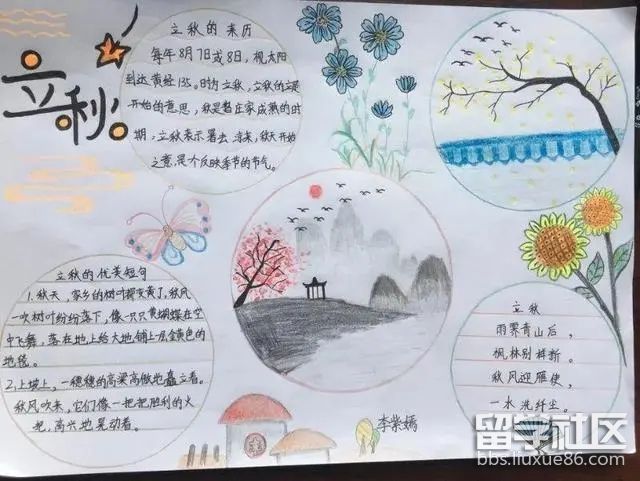 立秋
立秋的来历
每年8月7日或8日,视太阳
到达黄经135。时为立秋,立秋的立是
开始的意思,秋是指庄家成熟的时
期,立秋表示暑去凉来,秋天开始
之意,是个反映季节的节气。
立秋的优美短句
1.秋天,家乡的树叶都变黄了,秋风
一吹树叶纷纷落下,像一只只黄蝴蝶在空
中飞舞,落在地上给大地铺上一层金黄色的
地毯。
2.上坡上,一穗穗的高粱高傲地矗立着。
秋风吹来,它们像一把把胜利的火
把,高兴地晃动着。
立秋
雨霁青山后,
枫林别样新。
秋风迎雁使,
一水洗纤尘。
李紫嫣
留学社区
bbs.liuxue86.com